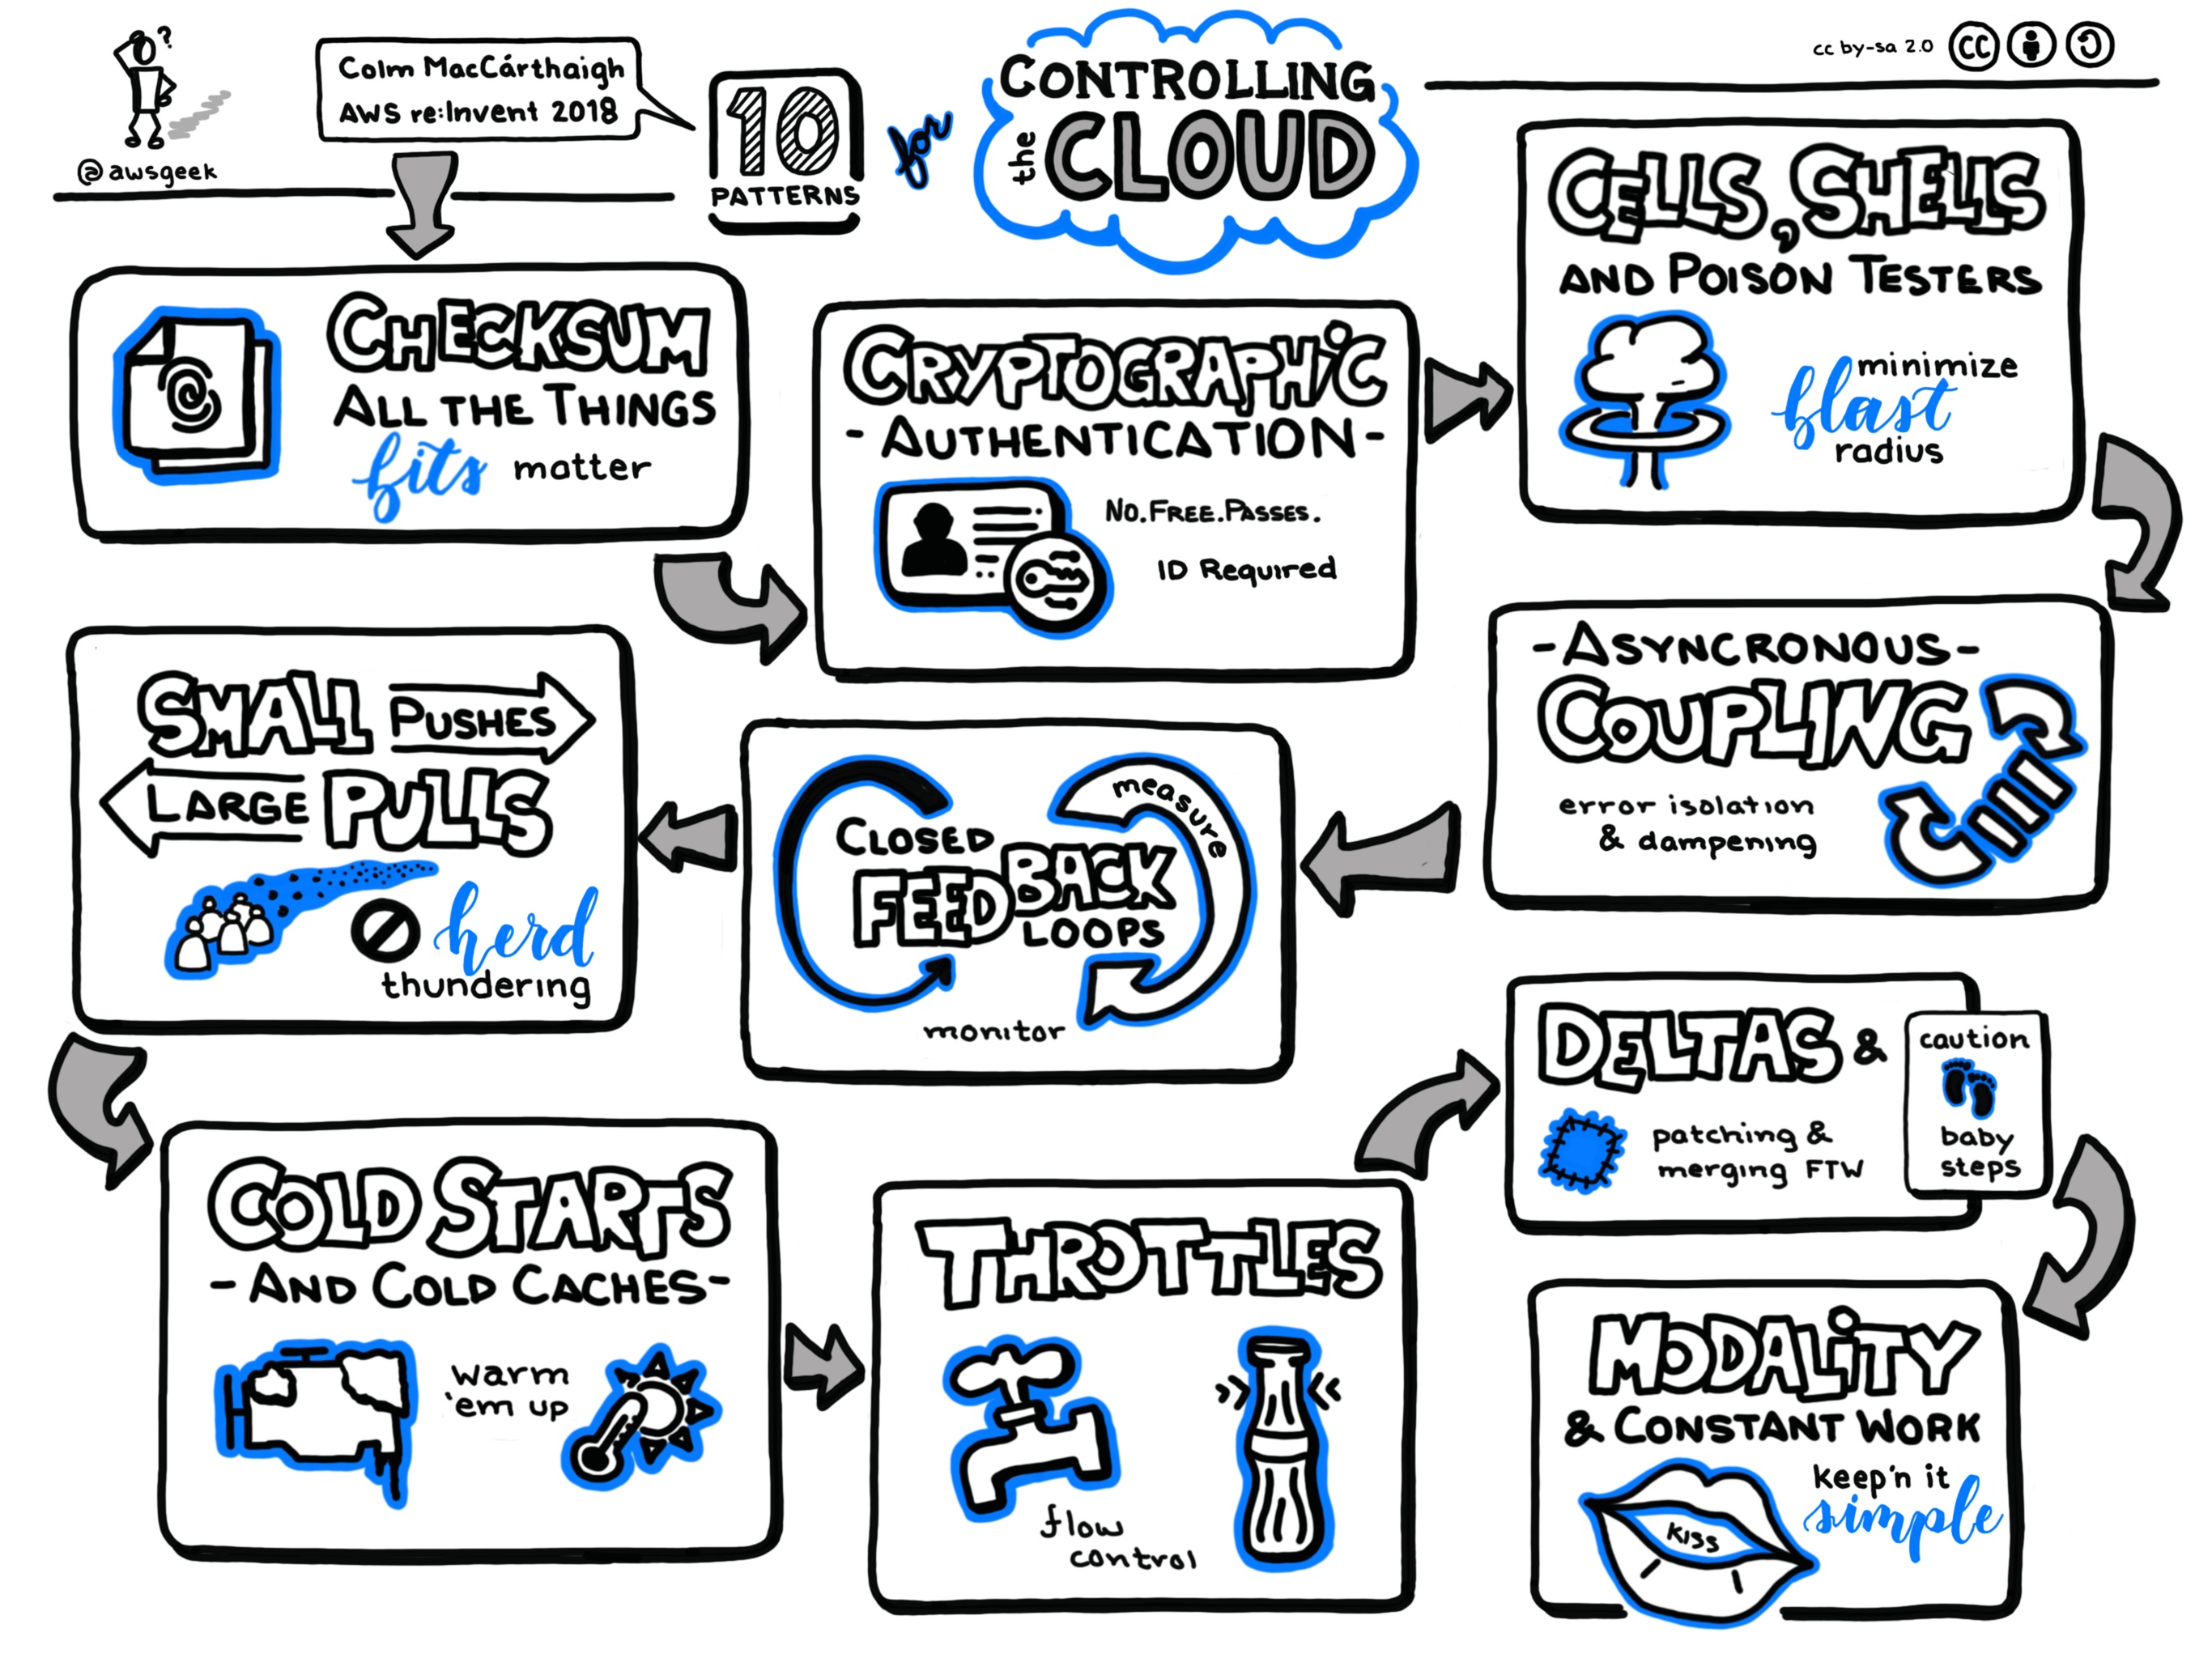 ?
@awsgeek
Colm MacCárthaigh
AWS re:Invent 2018
10
PATTERNS
for
CONTROLLING
the CLOUD
cc by-sa 2.0
CC
CHECKSUM
ALL THE THINGS
bits matter
CRYPTOGRAPHIC
- AUTHENTICATION -
NO.FREE.PASSES.
ID Required
CELLS, SHELLS
AND POISON TESTERS
minimize
blast
radius
- ASYNCRONOUS -
COUPLING
error isolation
& dampening
CLOSED
FEEDBACK
LOOPS
measure
monitor
SMALL PUSHES
LARGE PULLS
herd
thundering
COLD STARTS
- AND COLD CACHES -
warm
'em up
THROTTLES
flow
control
DELTAS &
patching &
merging FTW
caution
baby
steps
MODALITY
& CONSTANT WORK
keep'n it
simple
KISS